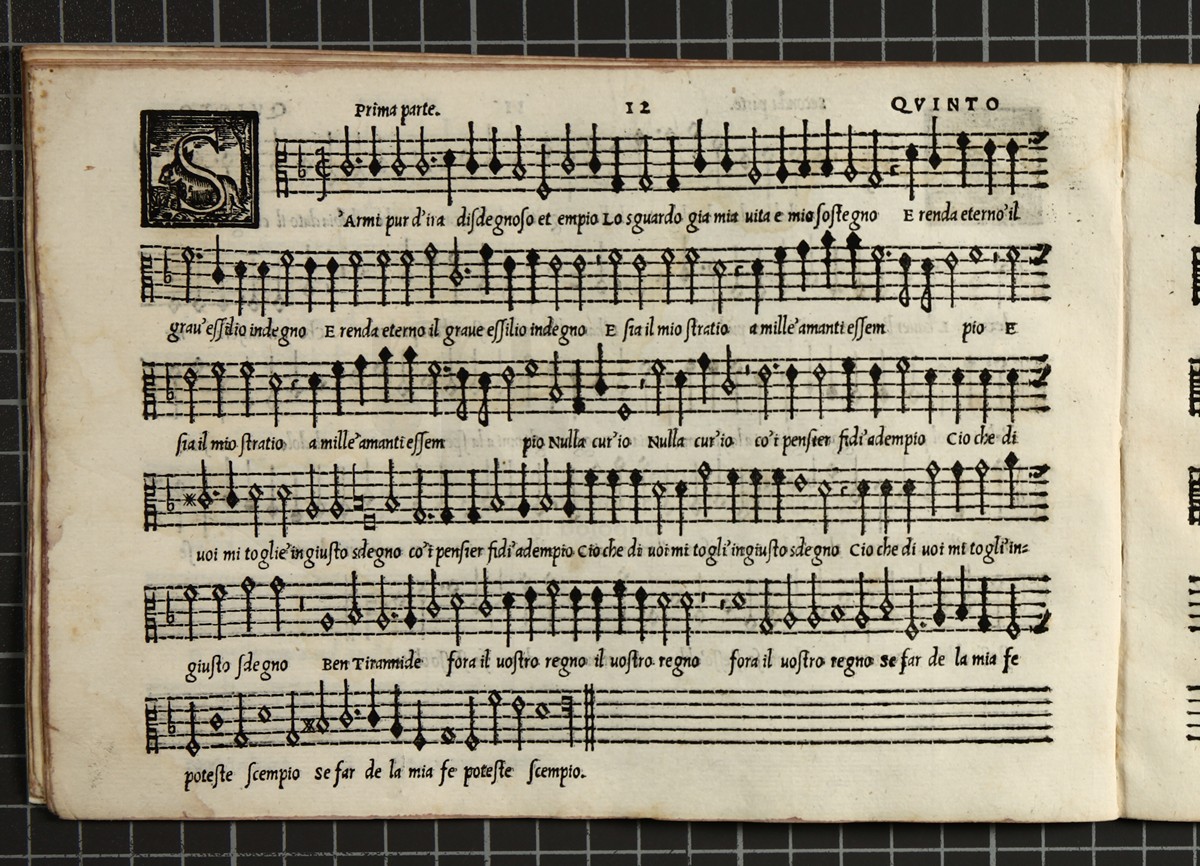 Prima parte. 12 QVINTO
S'Armi pur d'ira disdegnoso et empio Lo sguardo gia mia uita e mio sostegno E renda eterno'il
grau'essilio indegno E renda eterno il graue essilio indegno E sia il mio stratio a mille'amanti essem pio E
sia il mio stratio a mille'amanti essem pio Nulla cur'io Nulla cur'io co'i pensier fidi'adempio Cio che di
uoi mi toglie'ingiusto sdegno co'i pensier fidi'adempio Cio che di uoi mi togli'ingiusto sdegno Cio che di uoi mi togli'in=
giusto sdegno Ben Tirannide fora il uostro regno il uostro regno fora il uostro regno se far de la mia fe
poteste scempio se far de la mia fe poteste scempio.